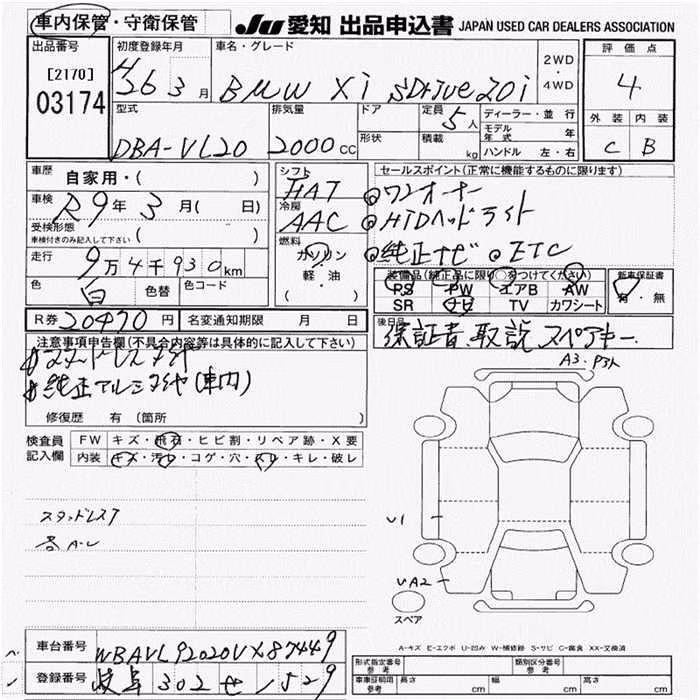 車内保管・守衛保管 JU 愛知 出品申込書 JAPAN USED CAR DEALERS ASSOCIATION
出品番号 初度登録年月 車名・グレード 2WD・4WD 評価点
[2170] 03174 H26 3月 BMW X1 SDrive20i 4
型式 排気量 ドア 定員 5人 ディーラー・並行 外装 内装
DBA-VL20 2000cc 形状 積載 kg モデル年式 年 ハンドル 左・右 C B
車歴 自家用・( ) シフト FAT セールスポイント(正常に機能するものに限ります)
車検 R9年3月( 日) 冷房 AAC ◎ワンオーナー
受検形態 車検付きのみ記入して下さい ( ) ◎HIDヘッドライト
走行 9万4千930km 燃料 ガソリン・軽・油 ( ) ◎純正ナビ ◎ETC
色 白 色替 色コード 装備品(純正品に限り○をつけてください) 新車保証書
PS PW エアB AW 有・無
SR ナビ TV カワシート
R券 20470円 名変通知期限 月 日 後日品 保証書 取説 スペアキー
注意事項申告欄(不具合内容等は具体的に記入して下さい)
#スタッドレスタイヤ
#純正アルミタイヤ(車内)
修復歴 有 (箇所 )
A3・P3ト
検査員記入欄 FW キズ・飛石・ヒビ割・リペア跡・X要
内装 キズ・汚レ・コゲ・穴・スレ・キレ・破レ
スタッドレス
U1
UA2
スペア
A-キズ E-エクボ U-凹み W-補修跡 S-サビ C-腐食 XX-交換済
車台番号 WBAVL92020VX87449
登録番号 岐阜 302 せ 1529
形式指定番号 参考 類別区分番号 参考
車庫証明用 参考 長さ cm 幅 cm 高さ cm